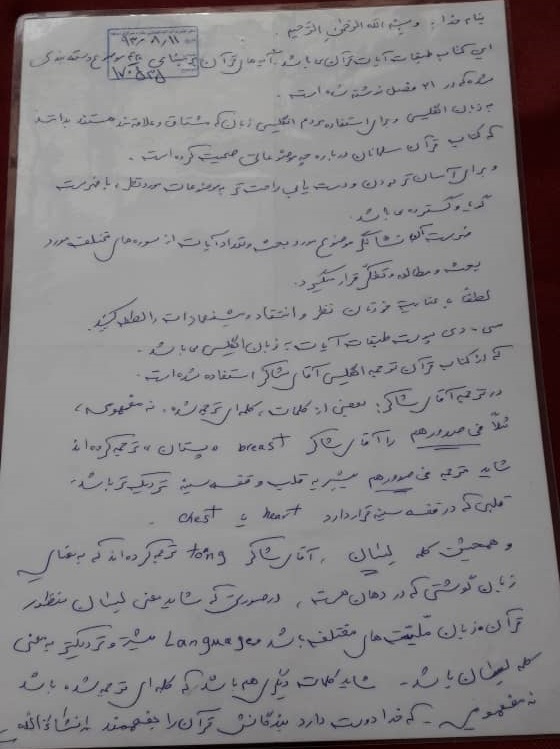 بنام خدا : بسم الله الرحمن الرحیم
۹۳/۰۸/۱۱
این کتاب طبقات آیات قرآن می باشد، آیه های قرآن بر مبنای موضوع دسته بندی
شده که در ۲۱ فصل نوشته شده است .
به زبان انگلیسی و برای استفاده مردم انگلیسی زبان که مشتاق و علاقه مند هستند بدانند
که کتاب قرآن مسلمانان درباره چه موضوعاتی صحبت کرده است .
و برای آسان تر بودن و دست یابی راحت تر به موضوعات مورد نظر، با فهرست
کوتاه و گسترده می باشد .
فهرست آنها نشانگر موضوع مورد بحث و تعداد آیات از سوره های مختلف مورد
بحث و مطالعه و تفکر قرار میگیرد .
لطفاً با عنایت خودتان نظر و انتقاد و پیشنهادات را لطف کنید
سی - دی پیوست طبقات آیات به زبان انگلیسی می باشد .
که از کتاب قرآن ترجمه انگلیسی آقای شاکر استفاده شده است .
در ترجمه آقای شاکر، بعضی از کلمات، کلمه ای ترجمه شده . نه مفهومی،
مثلاً فی صدورهم را آقای شاکر breast « پستان » ترجمه کرده اند
شاید ترجمه فی صدورهم بیشتر به قلب و قفسه سینه نزدیک تر باشد،
قلبی که در قفسه سینه قرار دارد heart یا chest .
و همچنین کلمه لِسان ، آقای شاکر tong ترجمه کرده اند که به معنای
زبان گوشتی که در دهان هست ، در صورتی که شاید معنی لسان منظور
قرآن زبان ملیّت های مختلف باشد Languages بیشتر و نزدیکتر به معنی
کلمه لسان باشد - شاید کلمات دیگری هم باشد که کلمه ای ترجمه شده باشد
نه مفهومی - که خدا دوست دارد بندگانش قرآن را بفهمند انشاءالله